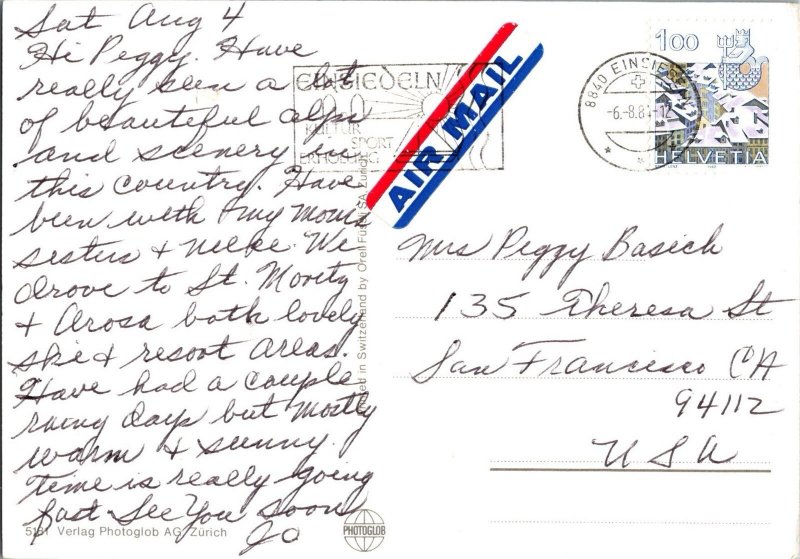 Sat Aug 4
Hi Peggy. Have
really seen a lot
of beautiful alps
and scenery in
this country. Have
been with my Moms
sisters +
We
drove to St. Moritz
+ Arosa both lovely
ski + resort areas.
Have had a couple
rainy days but mostly
warm + sunny.
Time is really going
fast See You Soon
Jo
5181 Verlag Photoglob AG, Zürich
EINSIEDELN
KULTUR
SPORT
ERHOLUNG
AIR MAIL
in Switzerland by Orell Füssli SA, Zürich
PHOTOGLOB
8840 EINSIE
-6.-8.84-12
100
HELVETIA
Mrs Peggy Basich
135 Theresa St
San Francisco CA
94112
USA